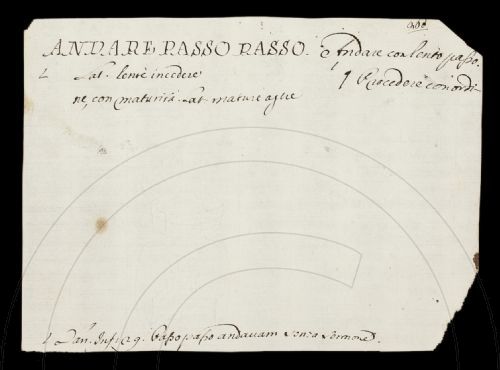 908
ANDARE PASSO PASSO. è Andare con lento passo.
L Lat. lentè incedere ¶ Procedere con ordi-
ne, con maturità. Lat. maturè agere
L Dan. Inf. 29. Passo passo andavam senza sermone.